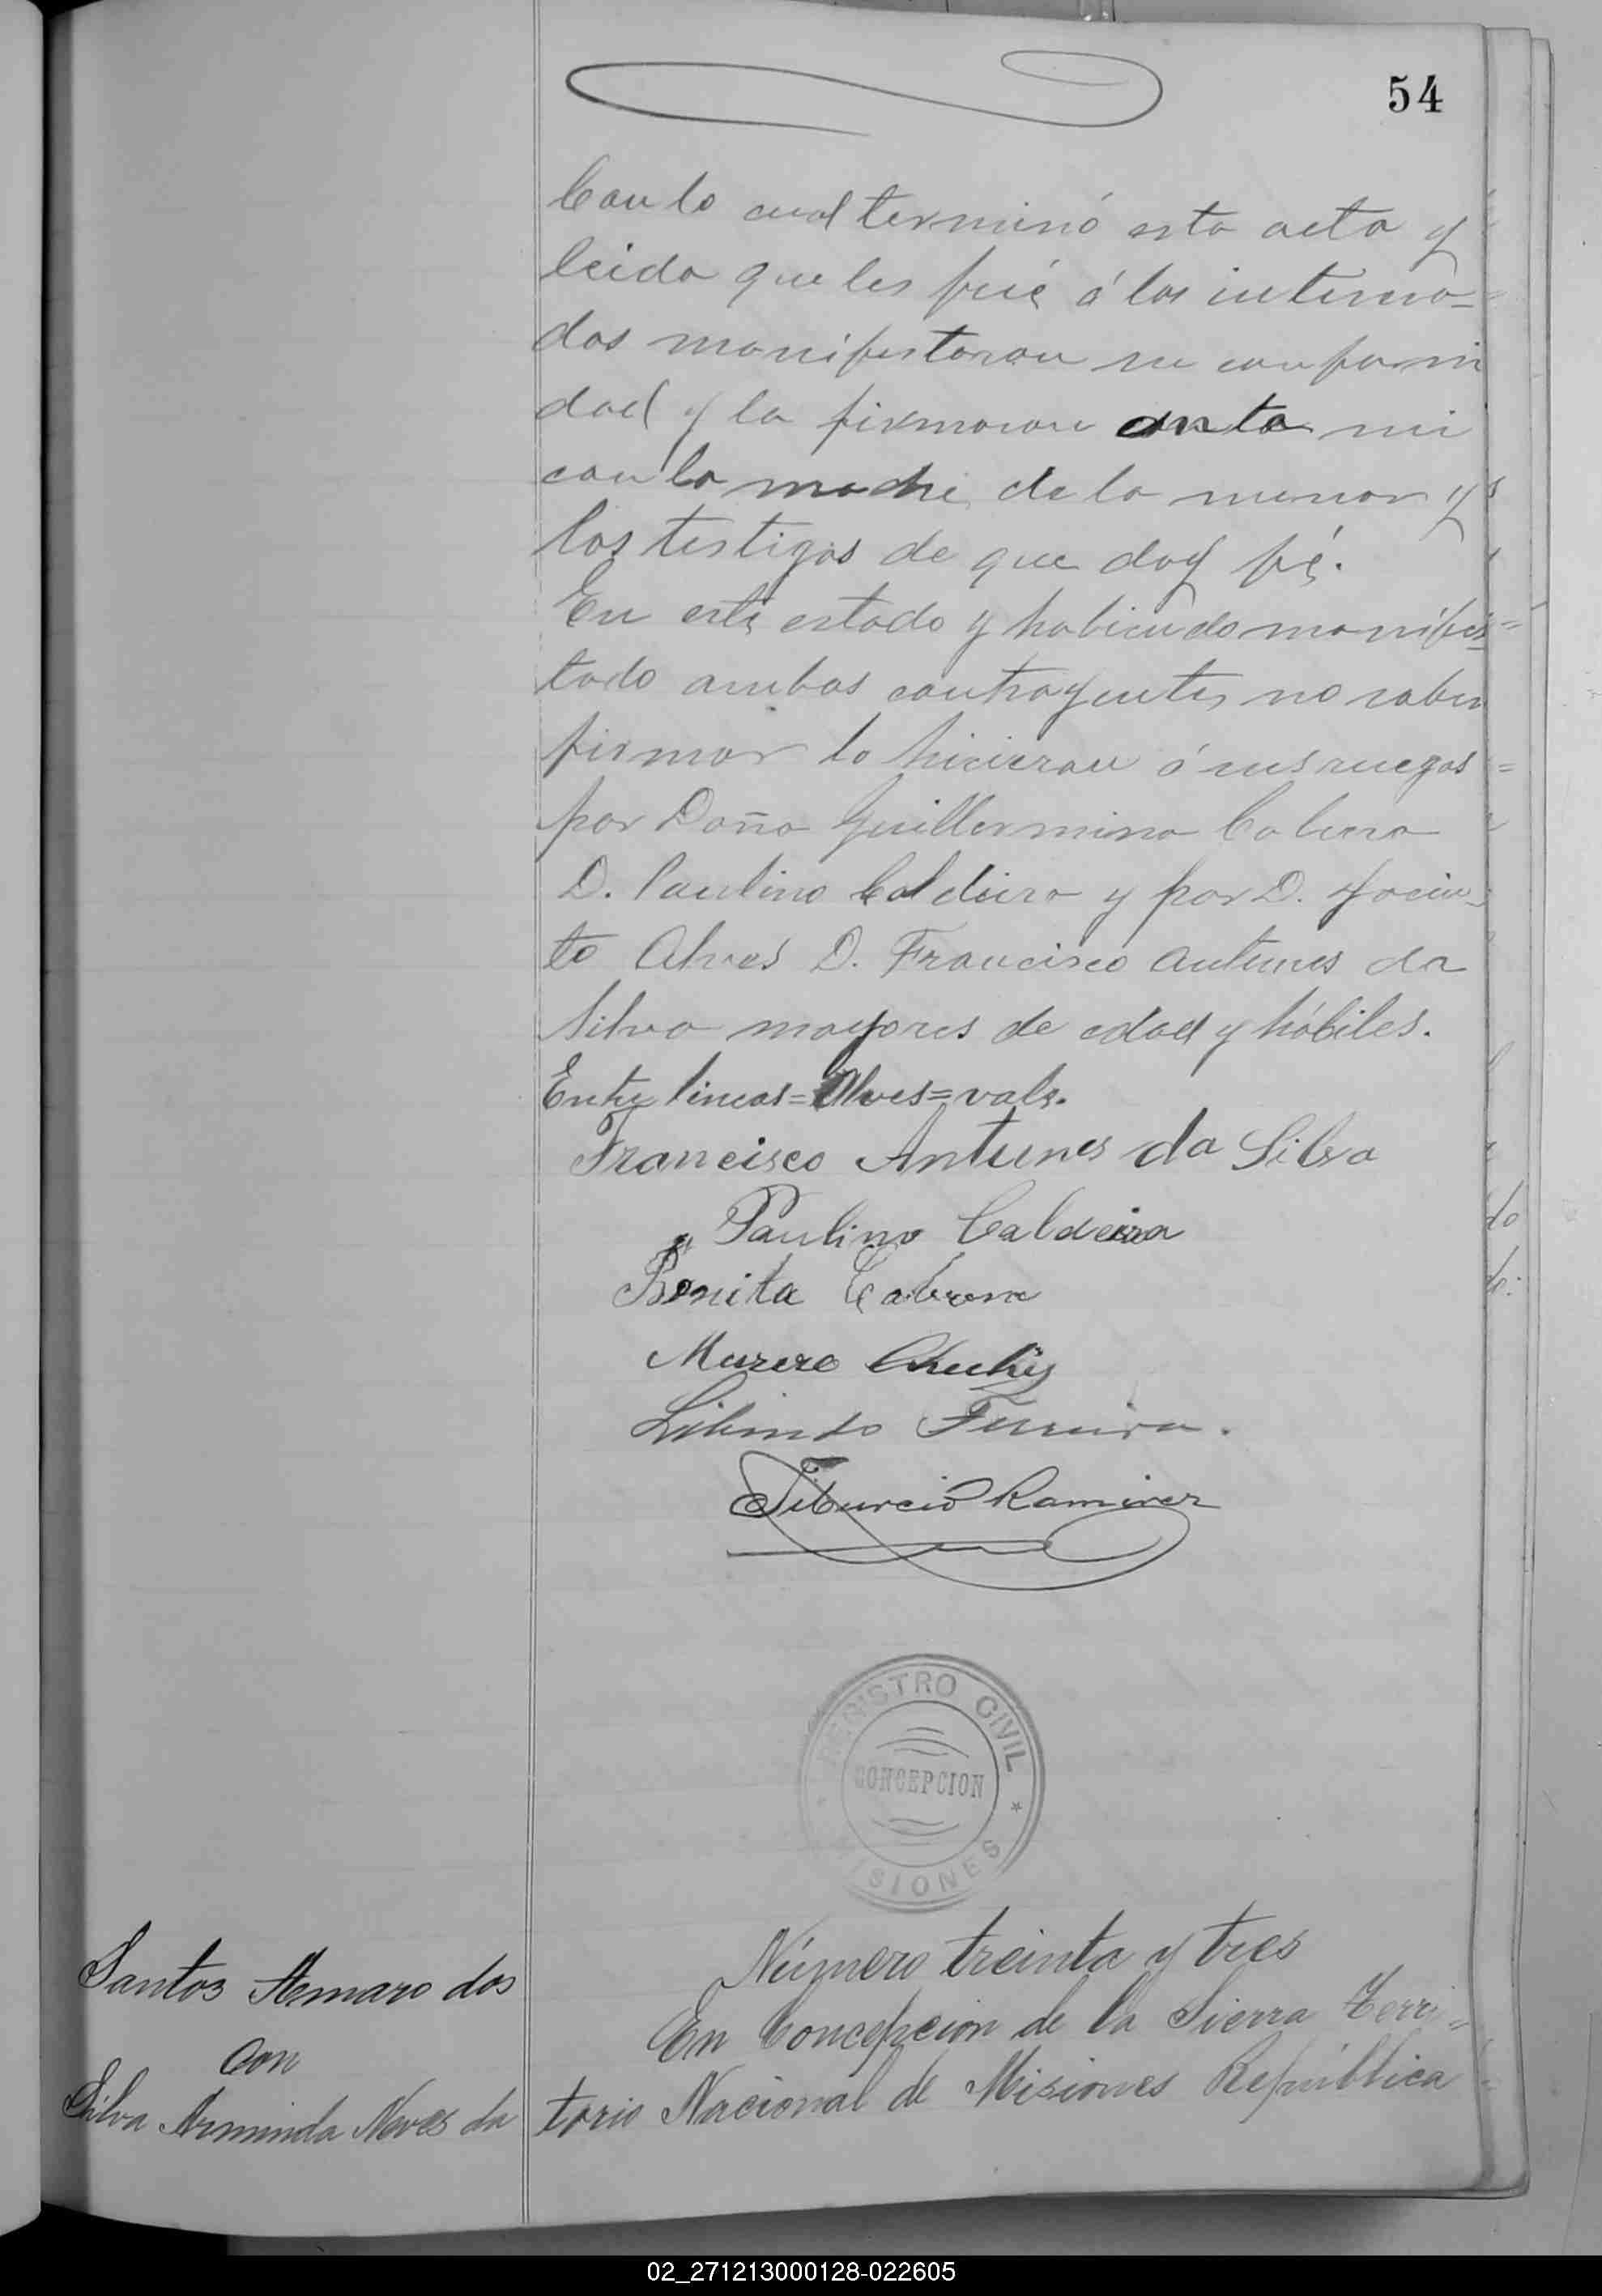 54
Con lo cual terminó esta acta y
leida que les fué á los interesa=
dos manifestaron su conformi
dad y la firmaron ante mi
con la madre de la menor y
los testigos de que doy fé.
En este estado y habiendo manifes=
tado ambos contrayentes no saber
firmar lo hicieron á sus ruegos
por Doña Guillermina Cabrera
D. Paulino Caldeira y por D. Jacin=
to Alves D. Francisco Antunes da
Silva mayores de edad y hábiles.
Entre lineas=Alves=vale.
Francisco Antunes da Silva
Paulino Caldeira
Benita Cabrera
Libindo Ferreira.
Tiburcio Ramirez
REGISTRO CIVIL
CONCEPCION
MISIONES
Número treinta y tres
Santos Amaro dos
Con
Silva Arminda Neves da
En Concepcion de la Sierra Terri=
torio Nacional de Misiones República
02_271213000128-022605